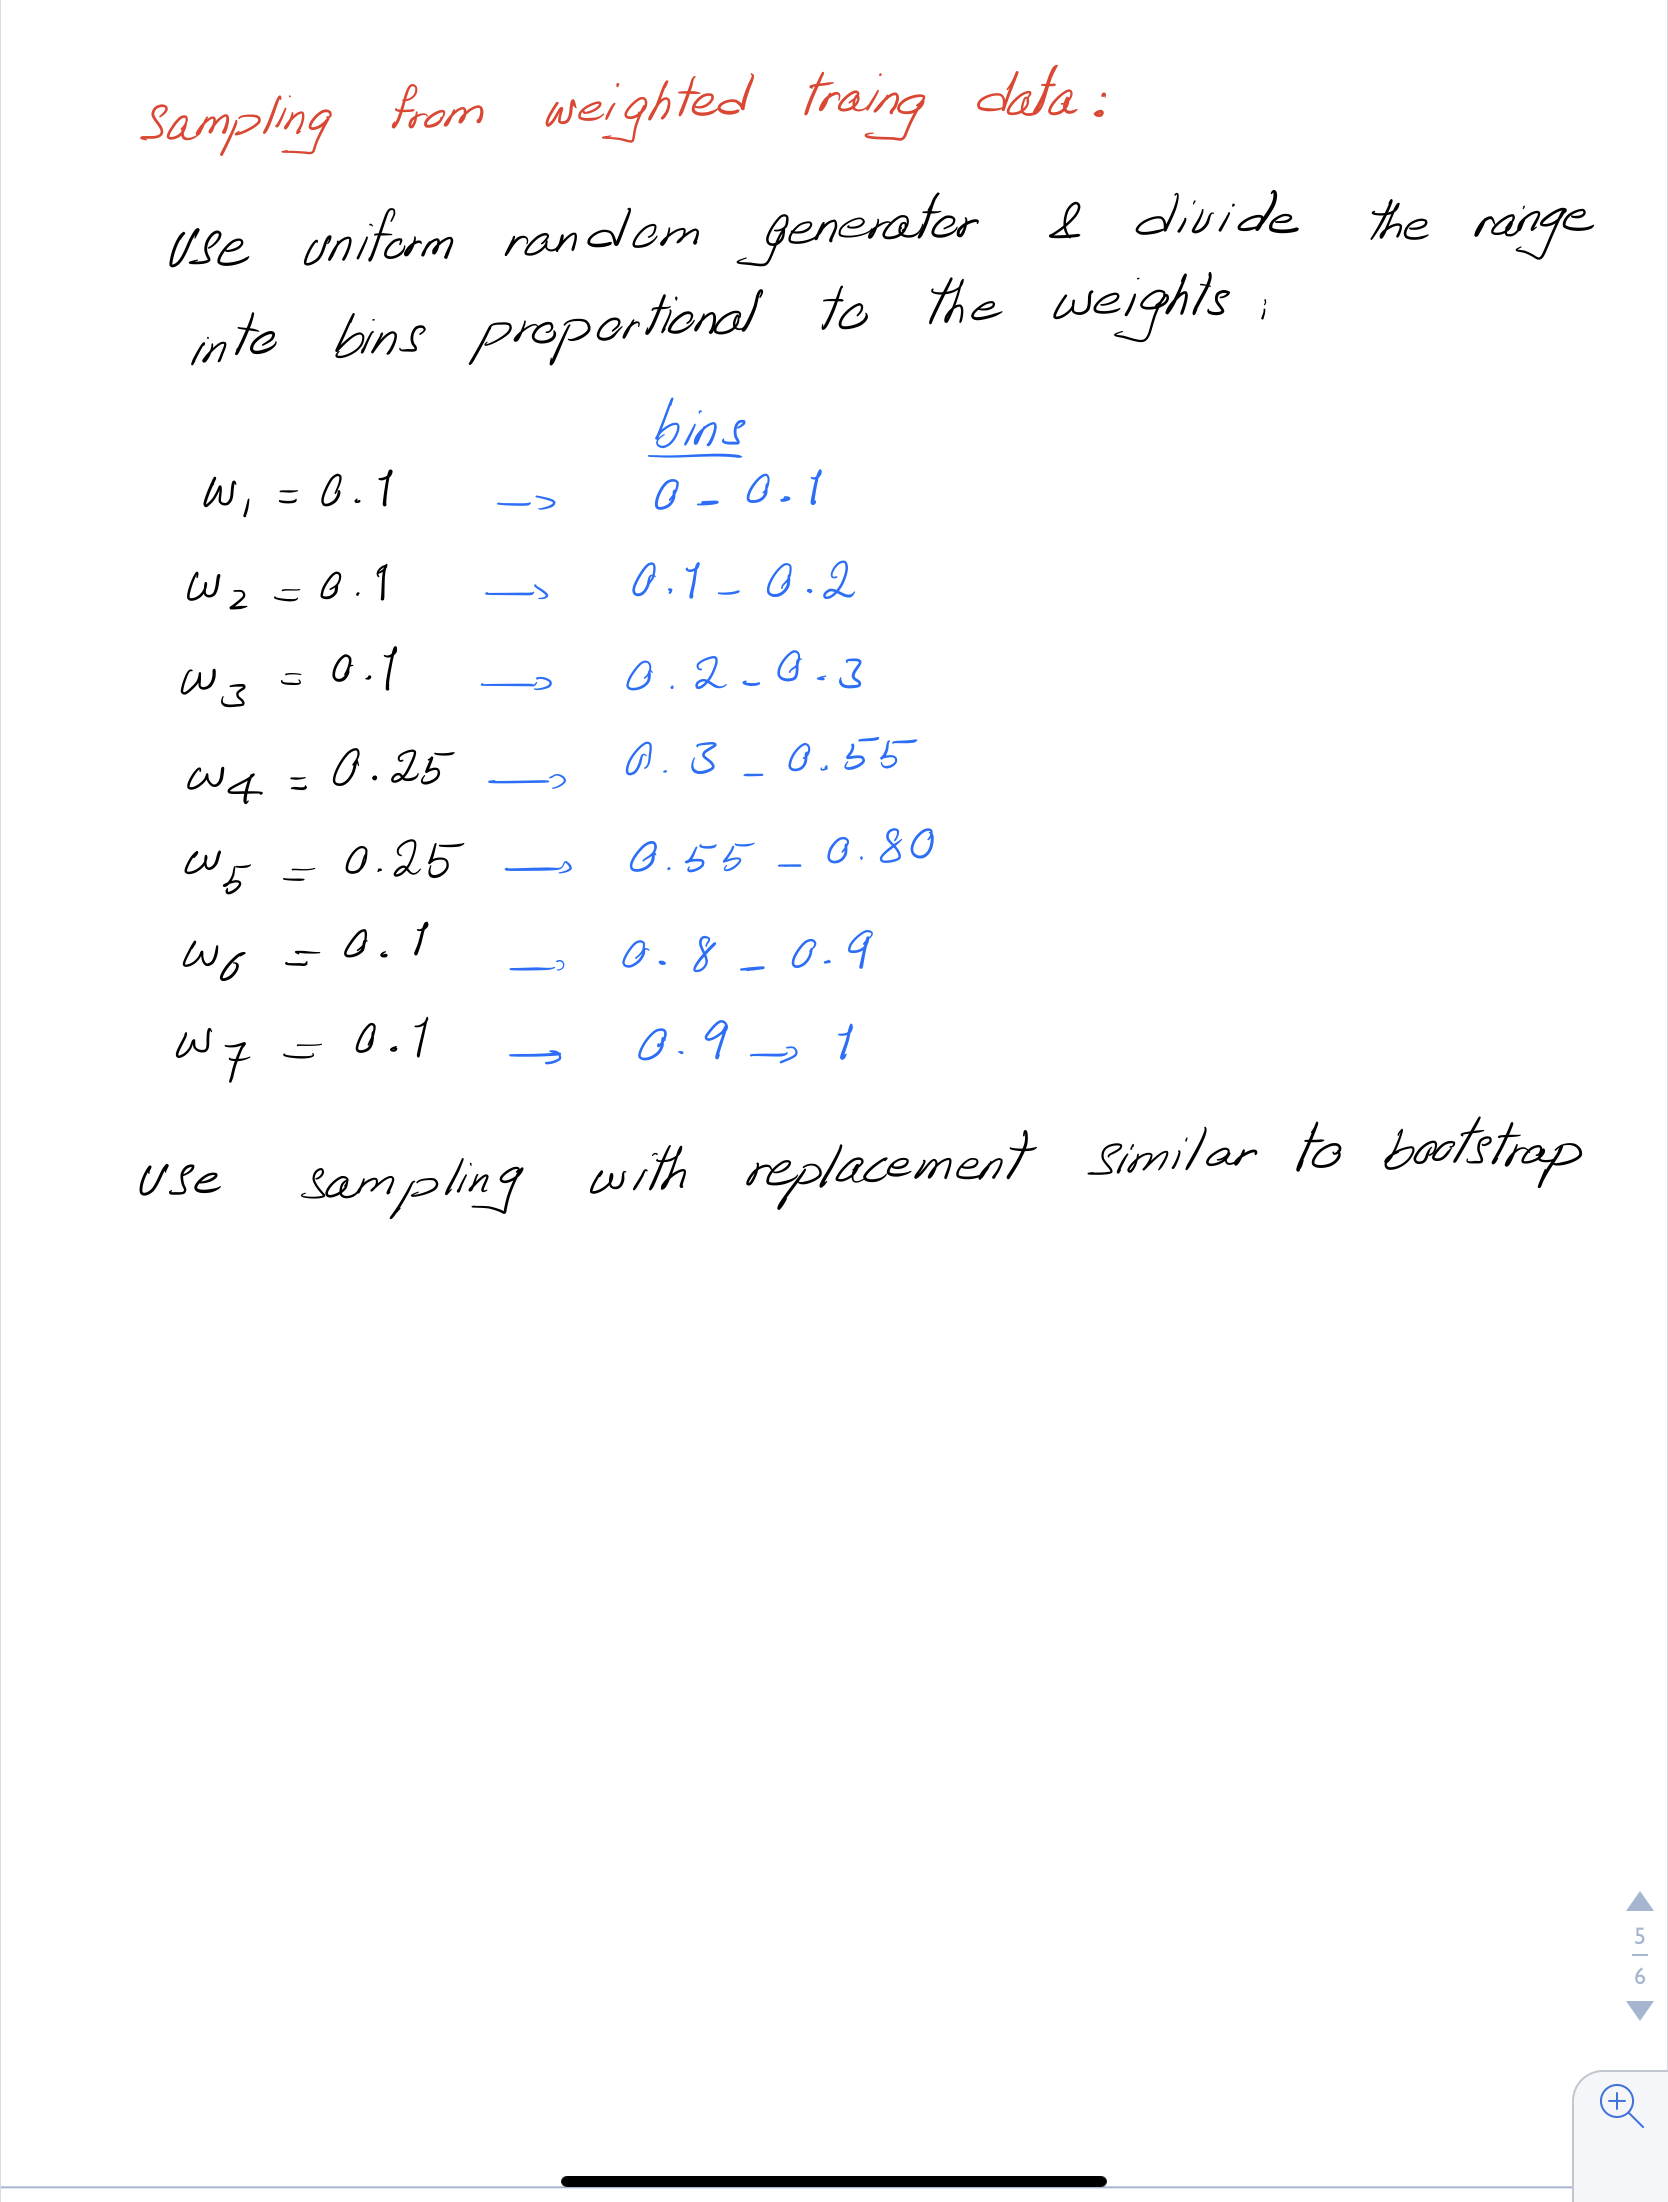 sampling from weighted traing data:
use uniform random generator & divide the range
into bins proportional to the weights;
bins
w1 = 0.1 → 0 - 0.1
w2 = 0.1 → 0.1 - 0.2
w3 = 0.1 → 0.2 - 0.3
w4 = 0.25 → 0.3 - 0.55
w5 = 0.25 → 0.55 - 0.80
w6 = 0.1 → 0.8 - 0.9
w7 = 0.1 → 0.9 → 1
use sampling with replacement similar to bootstrap
5
6